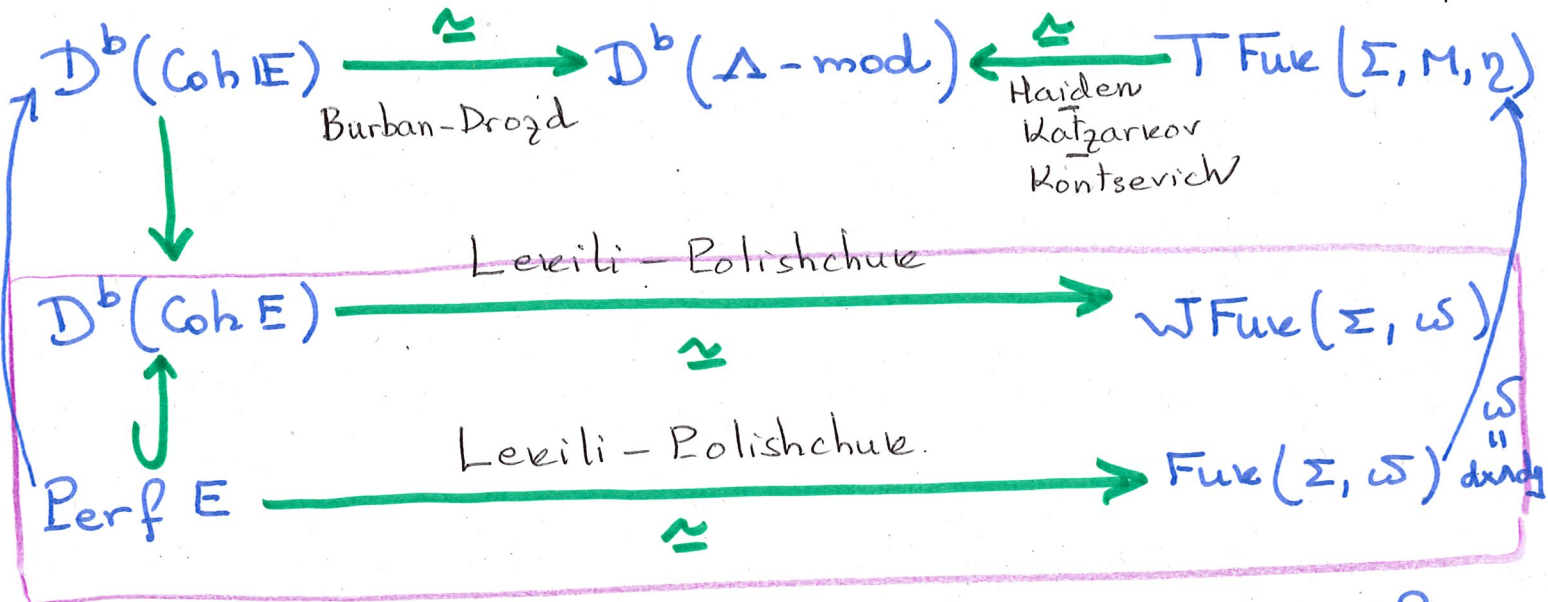 D^b(Coh 𝔼) ≃ D^b(Λ-mod) ≃ TFuk(Σ, M, η)
Burban-Drozd
Haiden
Katzarkov
Kontsevich
Lekili - Polishchuk
D^b(Coh E) ≃ WFuk(Σ, ω)
Lekili - Polishchuk.
Perf E ≃ Fuk(Σ, ω)
ω
=
dx∧dy